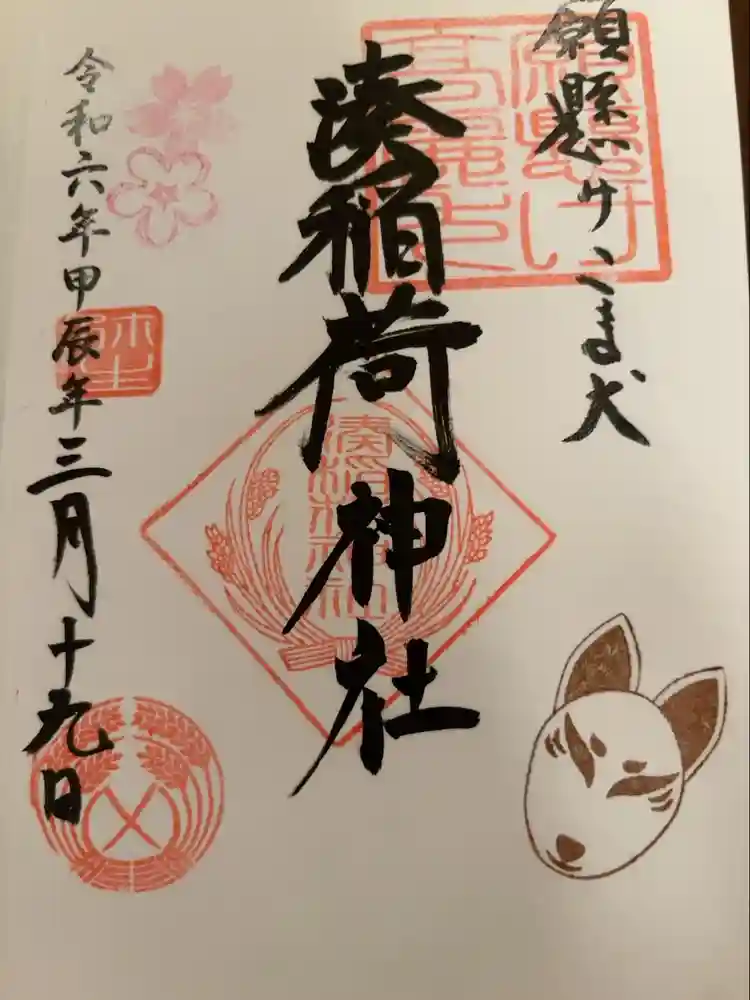 願懸けこま犬
願懸け
高麗犬
湊稲荷神社
湊稲荷神社
令和六年甲辰年三月十九日